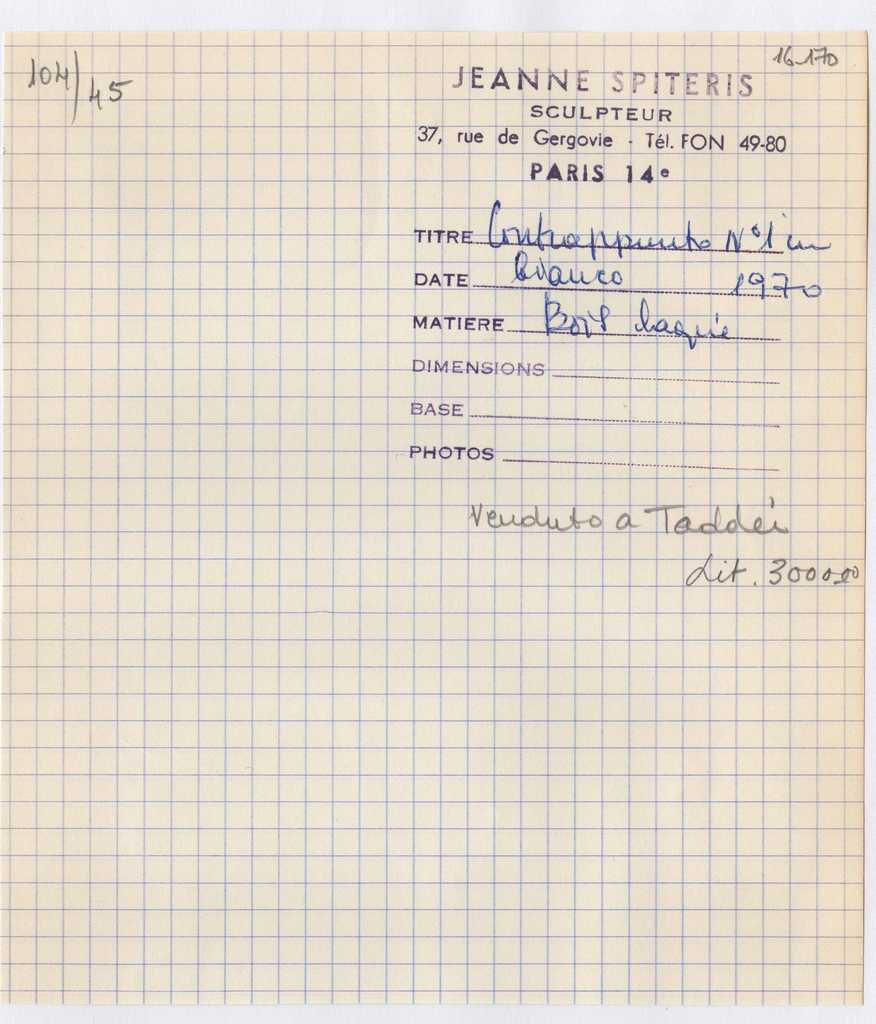 104/45
16-170
JEANNE SPITERIS
SCULPTEUR
37, rue de Gergovie - Tél. FON 49-80
PARIS 14e
TITRE Contrappunto N°1 in
DATE bianco 1970
MATIERE Bois laquée
DIMENSIONS
BASE
PHOTOS
Venduto a Taddei
Lit. 300000